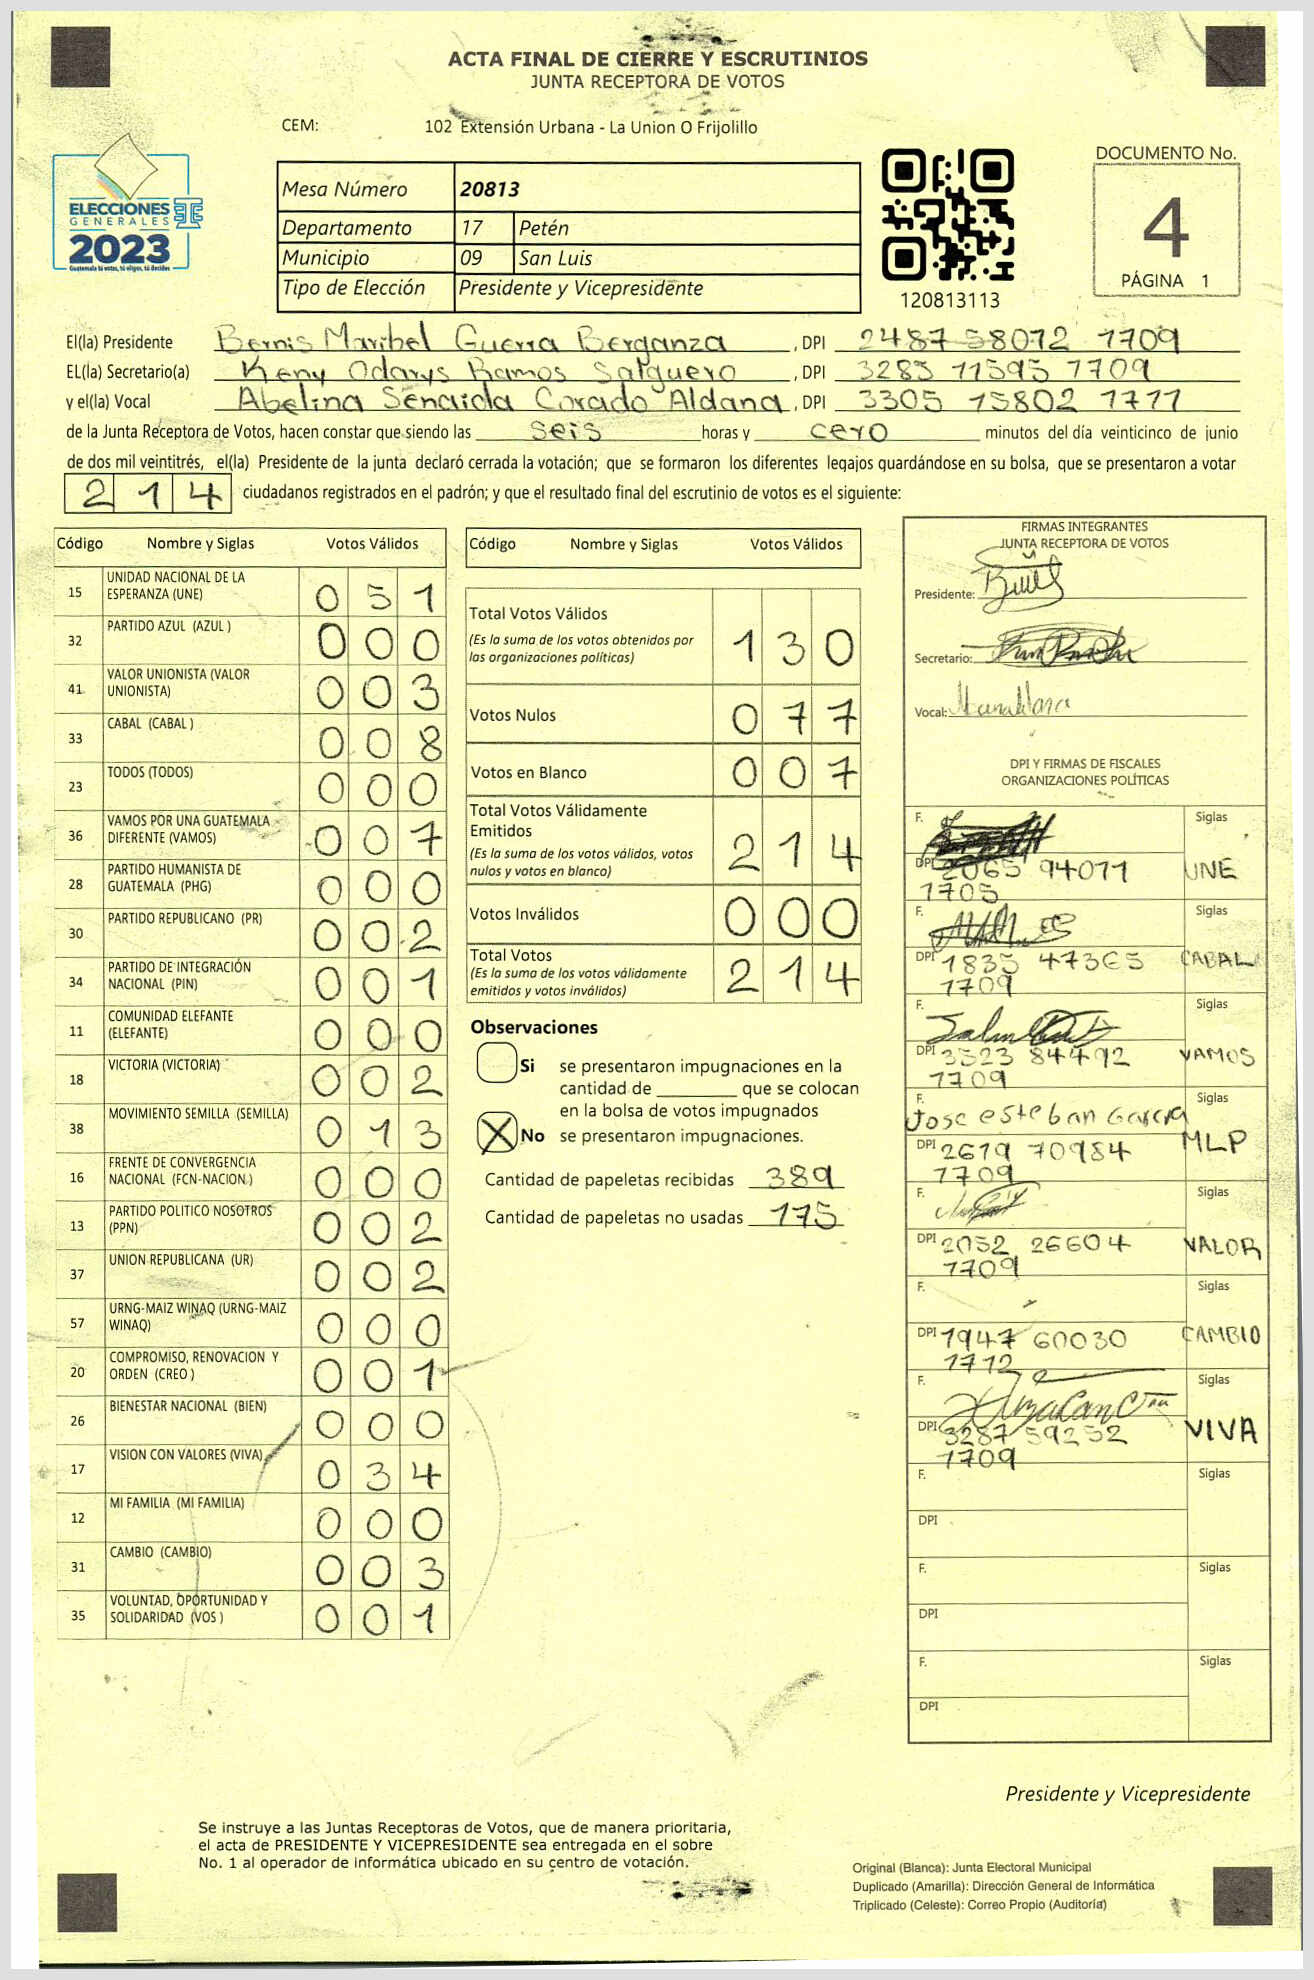 ACTA FINAL DE CIERRE Y ESCRUTINIOS
JUNTA RECEPTORA DE VOTOS
CEM: 102 Extensión Urbana - La Union O Frijolillo
ELECCIONES
GENERALES
2023
Guatemala tú votas, tú eliges, tú decides
Mesa Número 20813
Departamento 17 Petén
Municipio 09 San Luis
Tipo de Elección Presidente y Vicepresidente
120813113
DOCUMENTO No.
4
PÁGINA 1
El(la) Presidente Bernis Maribel Guerra Berganza, DPI 2487 58072 1709
EL(la) Secretario(a) Keny Odarys Ramos Salguero, DPI 3285 11595 1709
y el(la) Vocal Abelina Senaida Corado Aldana, DPI 3305 15802 1711
de la Junta Receptora de Votos, hacen constar que siendo las seis horas y cero minutos del día veinticinco de junio
de dos mil veintitrés, el(la) Presidente de la junta declaró cerrada la votación; que se formaron los diferentes legajos guardándose en su bolsa, que se presentaron a votar
214 ciudadanos registrados en el padrón; y que el resultado final del escrutinio de votos es el siguiente:
Código Nombre y Siglas Votos Válidos
15 UNIDAD NACIONAL DE LA ESPERANZA (UNE) 051
32 PARTIDO AZUL (AZUL ) 000
41 VALOR UNIONISTA (VALOR UNIONISTA) 003
33 CABAL (CABAL ) 008
23 TODOS (TODOS) 000
36 VAMOS POR UNA GUATEMALA DIFERENTE (VAMOS) 007
28 PARTIDO HUMANISTA DE GUATEMALA (PHG) 000
30 PARTIDO REPUBLICANO (PR) 002
34 PARTIDO DE INTEGRACIÓN NACIONAL (PIN) 001
11 COMUNIDAD ELEFANTE (ELEFANTE) 000
18 VICTORIA (VICTORIA) 002
38 MOVIMIENTO SEMILLA (SEMILLA) 013
16 FRENTE DE CONVERGENCIA NACIONAL (FCN-NACION ) 000
13 PARTIDO POLITICO NOSOTROS (PPN) 002
37 UNION REPUBLICANA (UR) 002
57 URNG-MAIZ WINAQ (URNG-MAIZ WINAQ) 000
20 COMPROMISO, RENOVACION Y ORDEN (CREO ) 001
26 BIENESTAR NACIONAL (BIEN) 000
17 VISION CON VALORES (VIVA) 034
12 MI FAMILIA (MI FAMILIA) 000
31 CAMBIO (CAMBIO) 003
35 VOLUNTAD, OPORTUNIDAD Y SOLIDARIDAD (VOS ) 001
Código Nombre y Siglas Votos Válidos
Total Votos Válidos 130
(Es la suma de los votos obtenidos por
las organizaciones políticas)
Votos Nulos 077
Votos en Blanco 007
Total Votos Válidamente
Emitidos 214
(Es la suma de los votos válidos, votos
nulos y votos en blanco)
Votos Inválidos 000
Total Votos 214
(Es la suma de los votos válidamente
emitidos y votos inválidos)
Observaciones
Si se presentaron impugnaciones en la
cantidad de ________ que se colocan
en la bolsa de votos impugnados
X No se presentaron impugnaciones.
Cantidad de papeletas recibidas 389
Cantidad de papeletas no usadas 175
FIRMAS INTEGRANTES
JUNTA RECEPTORA DE VOTOS
Presidente:
Secretario:
Vocal:
DPI Y FIRMAS DE FISCALES
ORGANIZACIONES POLÍTICAS
F. Siglas
DPI 2065 94071 UNE
1705
F. Siglas
DPI 1835 47365 CABAL
1709
F. Siglas
DPI 3523 84492 VAMOS
1709
F. Siglas
Jose esteban Garcia
DPI 2619 70984 MLP
1709
F. Siglas
DPI 2052 26604 VALOR
1709
F. Siglas
DPI 1947 60030 CAMBIO
1712
F. Siglas
DPI 3287 59252 VIVA
1709
F. Siglas
DPI
F. Siglas
DPI
F. Siglas
DPI
Presidente y Vicepresidente
Se instruye a las Juntas Receptoras de Votos, que de manera prioritaria,
el acta de PRESIDENTE Y VICEPRESIDENTE sea entregada en el sobre
No. 1 al operador de informática ubicado en su centro de votación.
Original (Blanca): Junta Electoral Municipal
Duplicado (Amarilla): Dirección General de Informática
Triplicado (Celeste): Correo Propio (Auditoría)